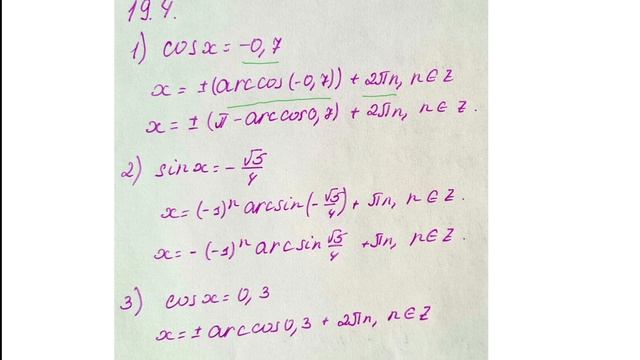 19.4.
1) cos x = -0,7
x = ±(arccos(-0,7)) + 2πn, n∈Z
x = ±(π - arccos0,7) + 2πn, n∈Z.
2) sin x = -√5/4
x = (-1)ⁿ arcsin(-√5/4) + πn, n∈Z.
x = -(-1)ⁿ arcsin √5/4 + πn, n∈Z.
3) cos x = 0,3
x = ± arccos0,3 + 2πn, n∈Z